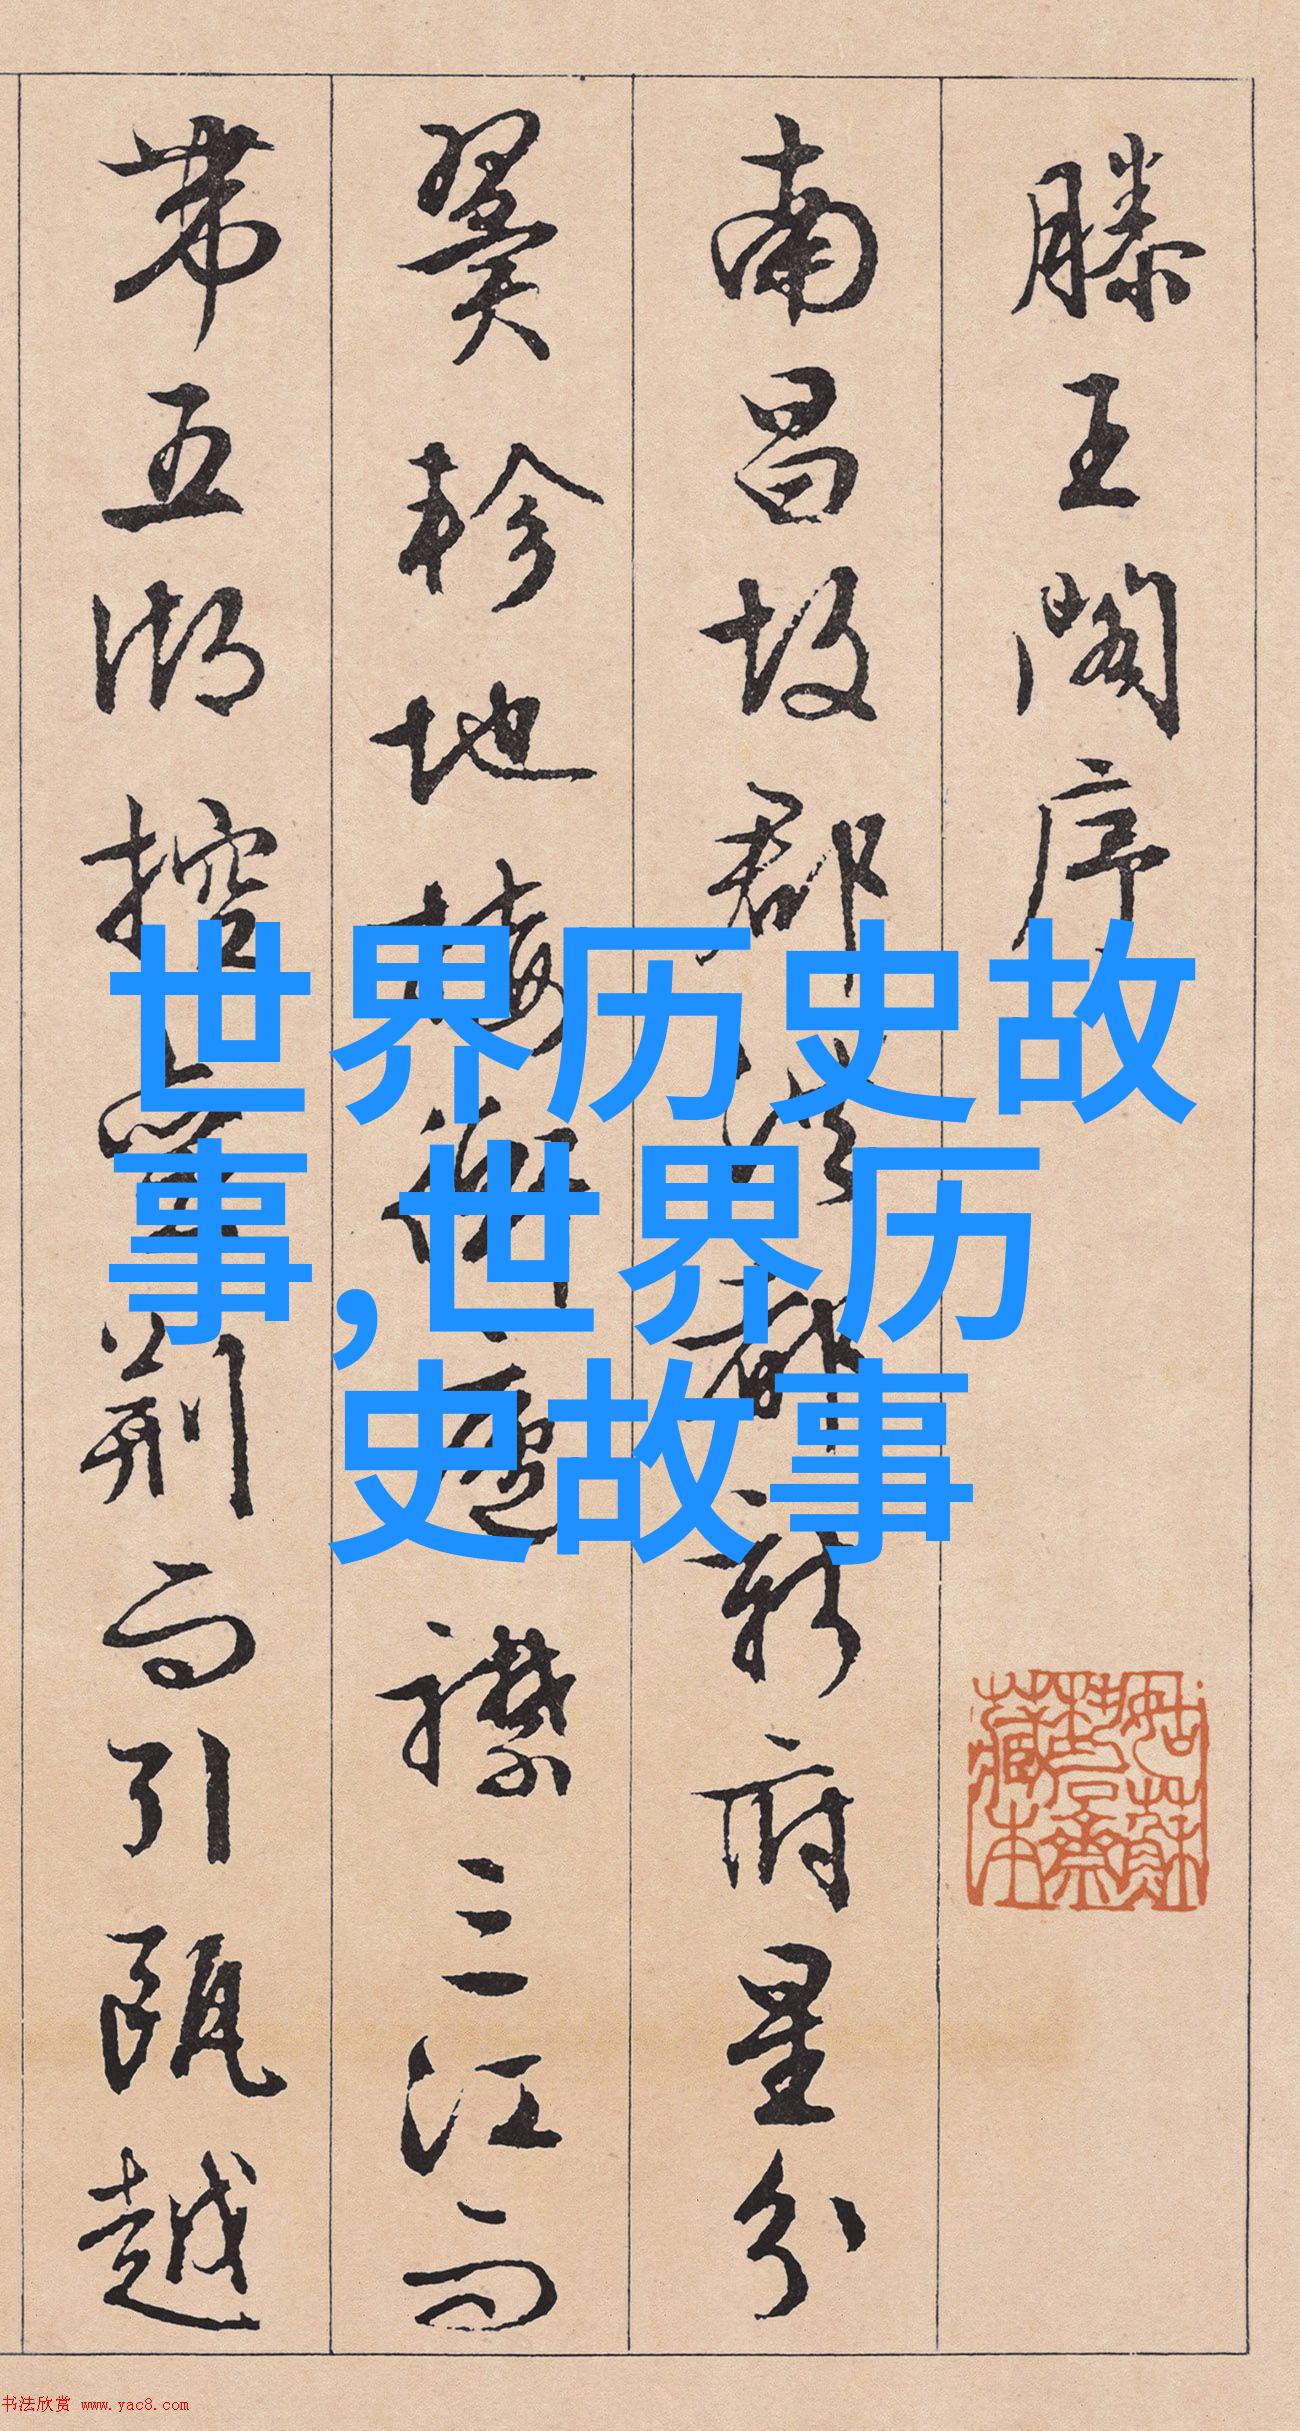 滕王阁序
南昌故郡洪都新府星分
翼轸地接衡庐襟三江而
带五湖控蛮荆而引瓯越
世界历史故
事,世界历
史故事
书法欣赏 www.yac8.com